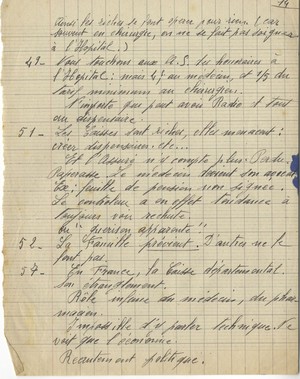 14
ainsi les riches se sont pour rien (car
souvent en chirurgie, on ne se fait pas soigner
à l'Hôpital.)
49- Nous touchons aux A.S. les honoraires à
l'Hôpital: mais 4/ au médecin, et 1/5 du
tarif minimum au chirurgien.
N'importe qui peut avoir Radio et tout
au dispensaire.
51- Les Caisses sont riches, elles menacent:
créer dispensaires etc...
Et l'Assuré n'y compte plus.
Paperasse. Le médecin son avocat
Ex: feuille de pension non signée.
Le contrôleur a en effet tendance à
toujours voir rechute
ou "guérison apparente"
52- La Famille prévient. D'autres ne le
font pas.
54- En France, la Caisse départementale.
Son étranglement.
Rôle infime du médecin, du phar-
macien.
Impossible d'y parler technique. Ne
veut que l'économie.
Recrutement politique.